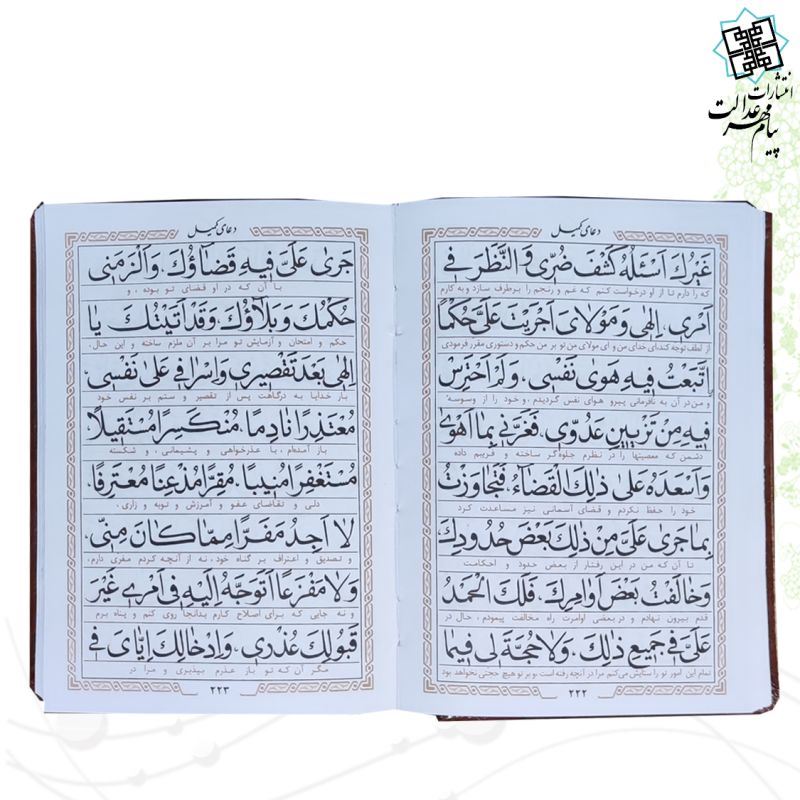 انتشارات
پیام مهر عدالت
دعای کمیل
غَیْرُكَ اَسْئَلُهُ كَشْفَ ضُرّی وَالنَّظَرَ فی
که را دارم تا از او درخواست کنم که غم و رنجم را برطرف سازد و به کارم
اَمْری، اِلهی وَ مَوْلایَ اَجْرَیْتَ عَلَیَّ حُكْمًا
از لطف توجه کند ای خدای من و ای مولای من تو بر من حکم و دستوری مقرر فرمودی
اِتَّبَعْتُ فیهِ هَوی نَفْسی، وَلَمْ اَحْتَرِسْ
و من در آن به نافرمانی پیرو هوای نفس گردیدم، و خود را از وسوسه
فیهِ مِنْ تَزْیینِ عَدُوّی، فَغَرَّنی بِما اَهْوی
دشمن که معصیتها را در نظرم جلوه‌گر ساخته و فریبم داده
وَاَسْعَدَهُ عَلی ذلِكَ الْقَضاءُ، فَتَجاوَزْتُ
خود را حفظ نکردم و قضای آسمانی نیز مساعدت کرد
بِما جَری عَلَیَّ مِنْ ذلِكَ بَعْضَ حُدُودِكَ
تا آن که من در این رفتار از بعض حدود و احکامت
وَخالَفْتُ بَعْضَ اَوامِرِكَ، فَلَكَ الْحَمْدُ
قدم بیرون نهادم و در بعضی اوامرت راه مخالفت پیمودم، حال در
عَلَیَّ فی جَمیعِ ذلِكَ، وَلا حُجَّةَ لی فیما
تمام این امور تو را ستایش می‌کنم مرا در آنچه رفته است، و بر تو هیچ حجتی نخواهد بود
۲۲۲
دعای کمیل
جَری عَلَیَّ فیهِ قَضاؤُكَ، وَاَلْزَمَنی
با آن که در او قضای تو بوده، و
حُكْمُكَ وَبَلاؤُكَ، وَقَدْ اَتَیْتُكَ یا
حکم و امتحان و آزمایش تو مرا بر آن ملزم ساخته و این حال،
اِلهی بَعْدَ تَقْصیری وَاِسْرافی عَلی نَفْسی،
بار خدایا به درگاهت پس از تقصیر و ستم بر نفس خود
مُعْتَذِرًا نادِمًا، مُنْكَسِرًا مُسْتَقیلًا،
باز آمده‌ام، با عذرخواهی و پشیمانی، و شکسته
مُسْتَغْفِرًا مُنیبًا، مُقِرًّا مُذْعِنًا مُعْتَرِفًا،
دلی و تقاضای عفو و آمرزش و توبه و زاری،
لا اَجِدُ مَفَرًّا مِمّا كانَ مِنّی،
و تصدیق و اعتراف بر گناه خود، نه از آنچه کردم مفری دارم،
وَلا مَفْزَعًا اَتَوَجَّهُ اِلَیْهِ فی اَمْری غَیْرَ
و نه جایی که برای اصلاح کارم بدانجا روی کنم و پناه برم
قَبُولِكَ عُذْری، وَاِدْخالِكَ اِیّایَ فی
مگر آن که تو باز عذرم بپذیری و مرا در
۲۲۳